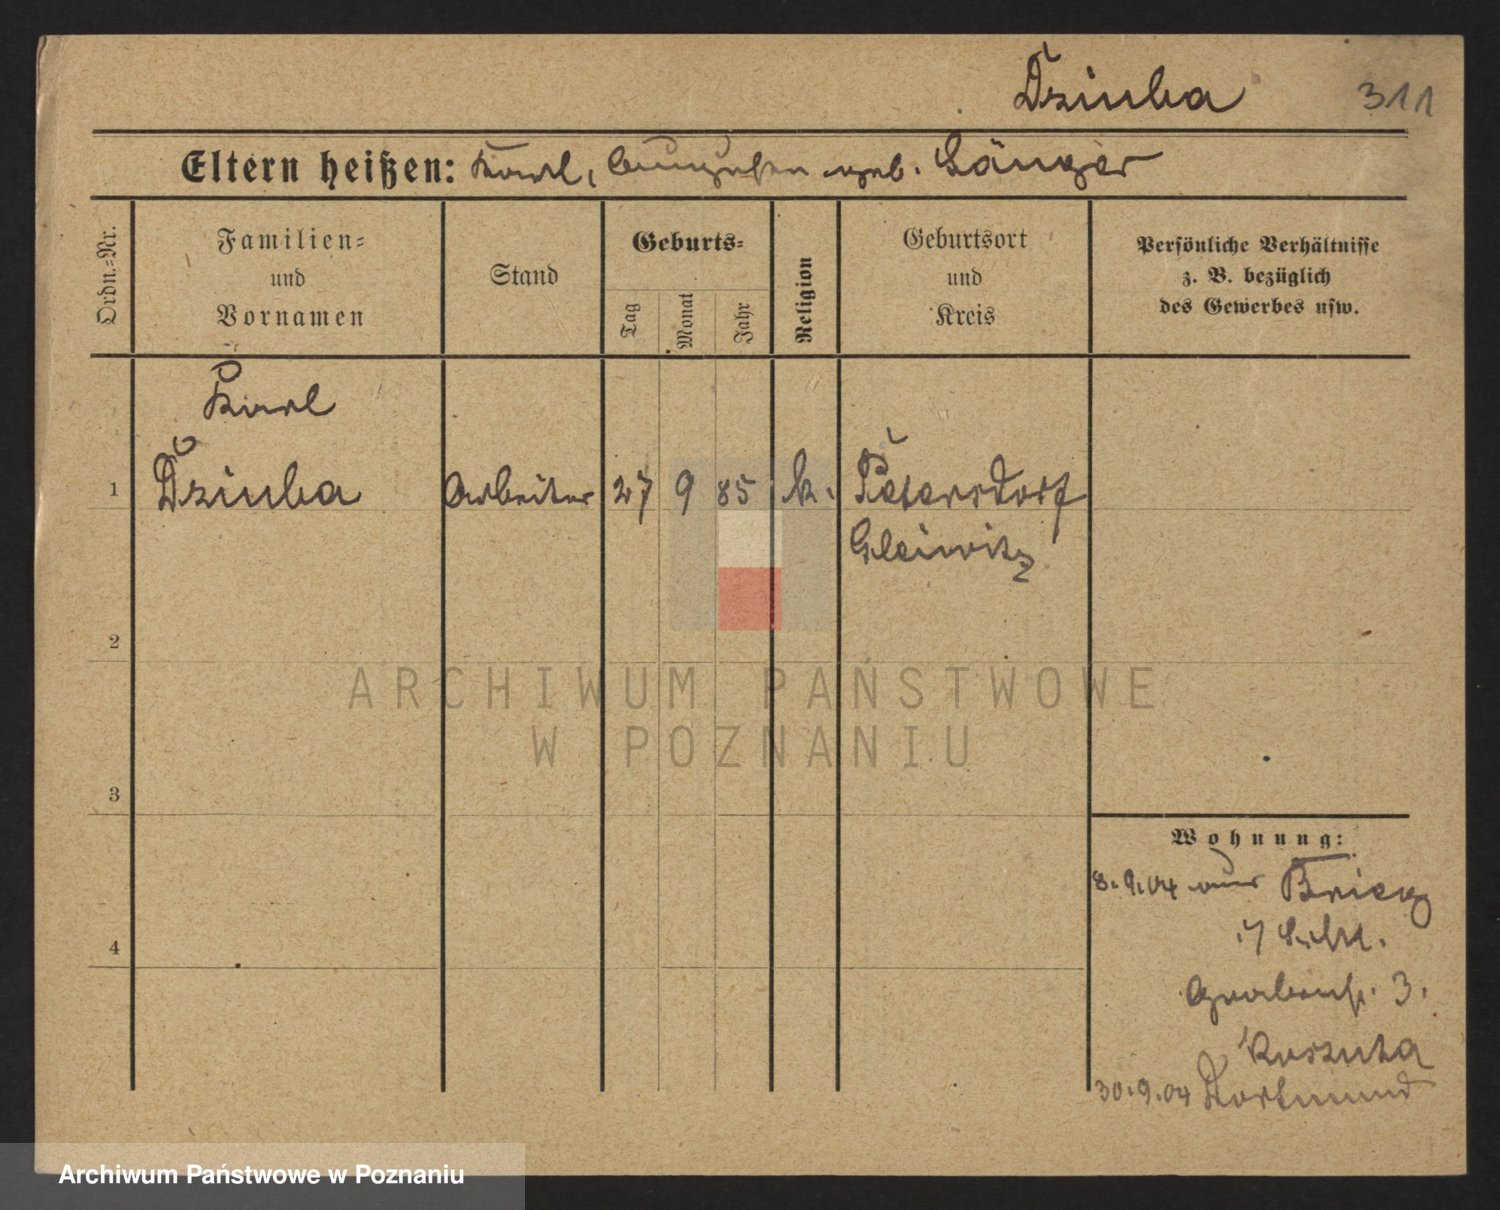 Dziuba 311
Eltern heißen: Karl, geb. Sänger
Ordn.-Nr.
Familien- und Vornamen
Stand
Geburts-
Tag
Monat
Jahr
Religion
Geburtsort und Kreis
Persönliche Verhältnisse
z. B. bezüglich
des Gewerbes usw.
Karl
1 Dziuba Arbeiter 27 9 85 k. Petersdorf
Gleiwitz
2
ARCHIWUM PAŃSTWOWE
W POZNANIU
3
Wohnung:
8.9.04 aus Brieg
4
3.
Koszuta
30.9.04 Dortmund
Archiwum Państwowe w Poznaniu